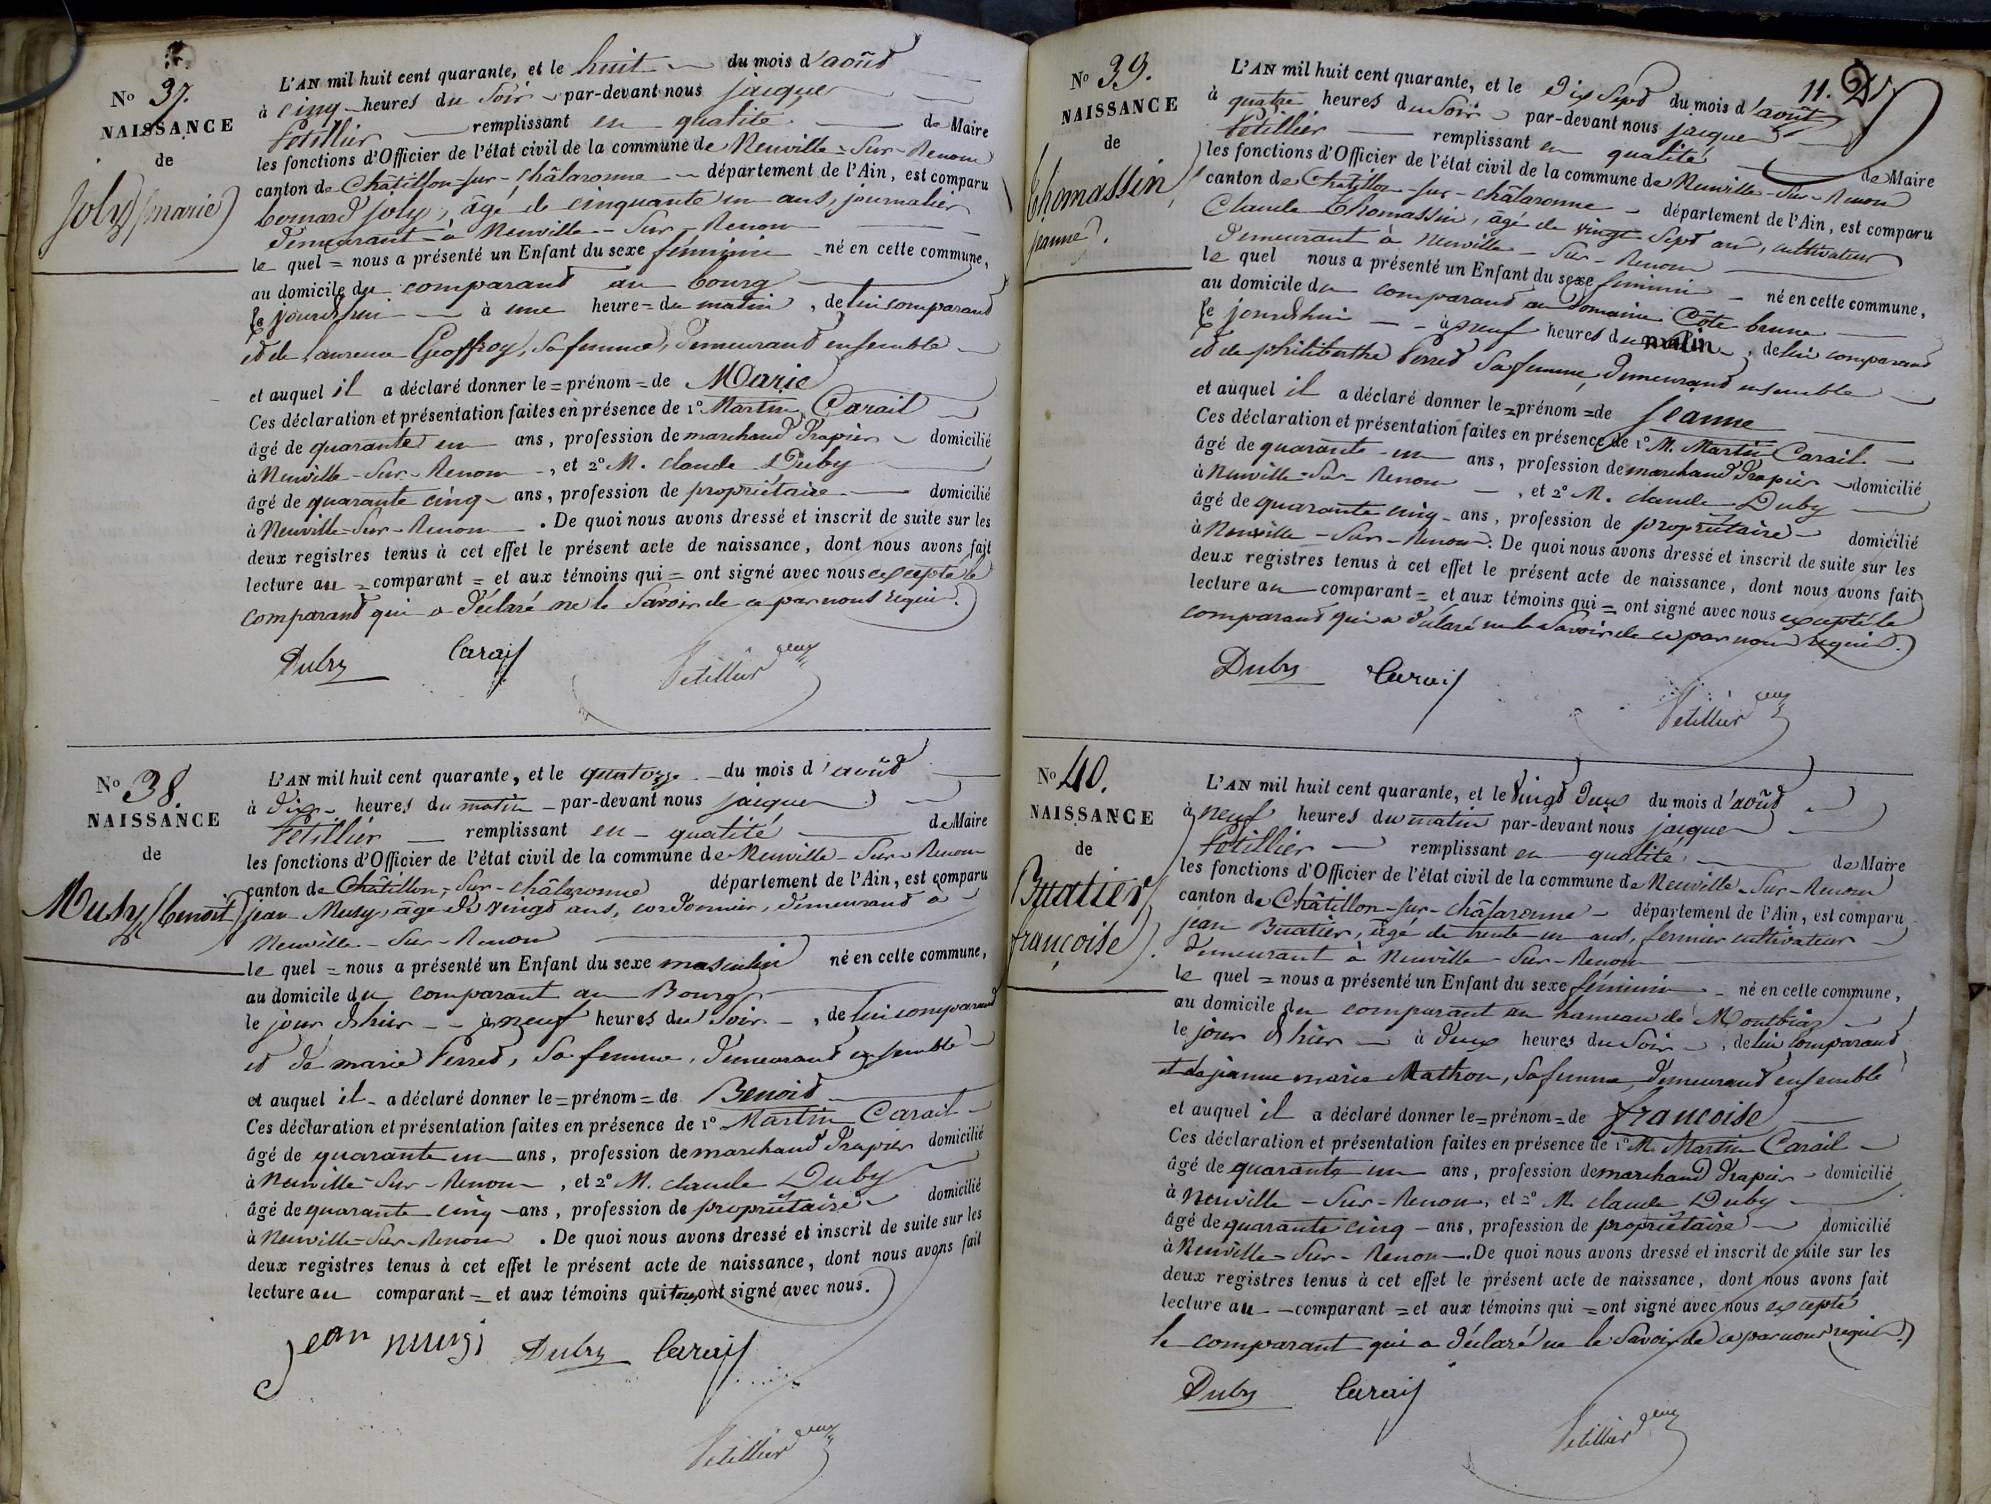 No 37.
NAISSANCE
de
Joly (marie)
L'AN mil huit cent quarante, et le huit du mois d'août
à cinq heures du soir par-devant nous jacques
Vetillier remplissant en qualité de Maire
les fonctions d'Officier de l'état civil de la commune de Neuville-Sur-Renom
canton de Châtillon-sur-châlaronne département de l'Ain, est comparu
bernard joly, âgé de cinquante un ans, journalier
demeurant à Neuville-Sur-Renom
le quel = nous a présenté un Enfant du sexe féminin né en cette commune,
au domicile du comparand au bourg
le jourdhui à une heure = du matin, de lui comparand
et de laurence Geoffroy, sa femme, demeurand ensemble
et auquel il a déclaré donner le = prénom = de Marie
Ces déclaration et présentation faites en présence de 1º Martin Carail
âgé de quarante un ans, profession de marchand drapier domicilié
à Neuville-Sur-Renom, et 2º M. claude Duby
âgé de quarante cinq ans, profession de propriétaire domicilié
à Neuville-Sur-Renom. De quoi nous avons dressé et inscrit de suite sur les
deux registres tenus à cet effet le présent acte de naissance, dont nous avons fait
lecture au = comparant = et aux témoins qui = ont signé avec nous excepté le
comparand qui a déclaré ne le savoir de ce par nous requis.
Duby Carail Vetillier
No 38.
NAISSANCE
de
Musy (benoit)
L'AN mil huit cent quarante, et le quatorze du mois d'août
à dix heures du matin par-devant nous jacques
Vetillier remplissant en qualité de Maire
les fonctions d'Officier de l'état civil de la commune de Neuville-Sur-Renom
canton de Châtillon-Sur-châlaronne département de l'Ain, est comparu
jean Musy, âgé de vingt ans, cordonnier, demeurand à
Neuville-Sur-Renom
le quel = nous a présenté un Enfant du sexe masculin né en cette commune,
au domicile du comparant au Bourg
le jour d'hier à neuf heures du soir, de lui comparand
et de marie Perred, sa femme, demeurand ensemble
et auquel il a déclaré donner le = prénom = de Benoid
Ces déclaration et présentation faites en présence de 1º Martin Carail
âgé de quarante un ans, profession de marchand drapier domicilié
à Neuville-Sur-Renom, et 2º M. claude Duby
âgé de quarante cinq ans, profession de propriétaire domicilié
à Neuville-Sur-Renom. De quoi nous avons dressé et inscrit de suite sur les
deux registres tenus à cet effet le présent acte de naissance, dont nous avons fait
lecture au comparant = et aux témoins qui tous ont signé avec nous.
jean musy Duby Carail
Vetillier
11. 21
No 39.
NAISSANCE
de
Thomassin
jeanne.
L'AN mil huit cent quarante, et le dix sept du mois d'août
à quatre heures du soir par-devant nous jacques
Vetillier remplissant en qualité de Maire
les fonctions d'Officier de l'état civil de la commune de Neuville-Sur-Renom
canton de Châtillon-sur-châlaronne département de l'Ain, est comparu
Claude Thomassin, âgé de vingt sept ans, cultivateur
demeurant à Neuville-Sur-Renom
le quel nous a présenté un Enfant du sexe féminin né en cette commune,
au domicile du comparand au domaine Côte brune
le jourdhui à neuf heures du matin, de lui comparand
et de philiberthe Perred sa femme, demeurand ensemble
et auquel il a déclaré donner le = prénom = de jeanne
Ces déclaration et présentation faites en présence de 1º M. Martin Carail
âgé de quarante-un ans, profession de marchand drapier domicilié
à Neuville-Sur-Renom, et 2º M. claude Duby
âgé de quarante cinq ans, profession de propriétaire domicilié
à Neuville-Sur-Renom. De quoi nous avons dressé et inscrit de suite sur les
deux registres tenus à cet effet le présent acte de naissance, dont nous avons fait
lecture au comparant = et aux témoins qui = ont signé avec nous excepté le
comparand qui a déclaré ne le savoir de ce par nous requis.
Duby Carail
Vetillier
No 40.
NAISSANCE
de
Buatier
françoise.
L'AN mil huit cent quarante, et le vingt deux du mois d'août
à neuf heures du matin par-devant nous jacques
Vetillier remplissant en qualité de Maire
les fonctions d'Officier de l'état civil de la commune de Neuville-Sur-Renom
canton de Châtillon-sur-châlaronne département de l'Ain, est comparu
jean Buatier, âgé de trente un ans, fermier cultivateur
demeurant à Neuville-Sur-Renom
le quel = nous a présenté un Enfant du sexe féminin né en cette commune,
au domicile du comparant au hameau de
le jour d'hier à deux heures du soir, de lui comparand
et de jeanne marie Mathon, sa femme, demeurand ensemble
et auquel il a déclaré donner le = prénom = de françoise
Ces déclaration et présentation faites en présence de 1º M. Martin Carail
âgé de quarante un ans, profession de marchand drapier domicilié
à Neuville-Sur-Renom, et 2º M. claude Duby
âgé de quarante cinq ans, profession de propriétaire domicilié
à Neuville-Sur-Renom. De quoi nous avons dressé et inscrit de suite sur les
deux registres tenus à cet effet le présent acte de naissance, dont nous avons fait
lecture au comparant = et aux témoins qui = ont signé avec nous excepté
le comparant qui a déclaré ne le savoir de ce par nous requis.
Duby Carail
Vetillier